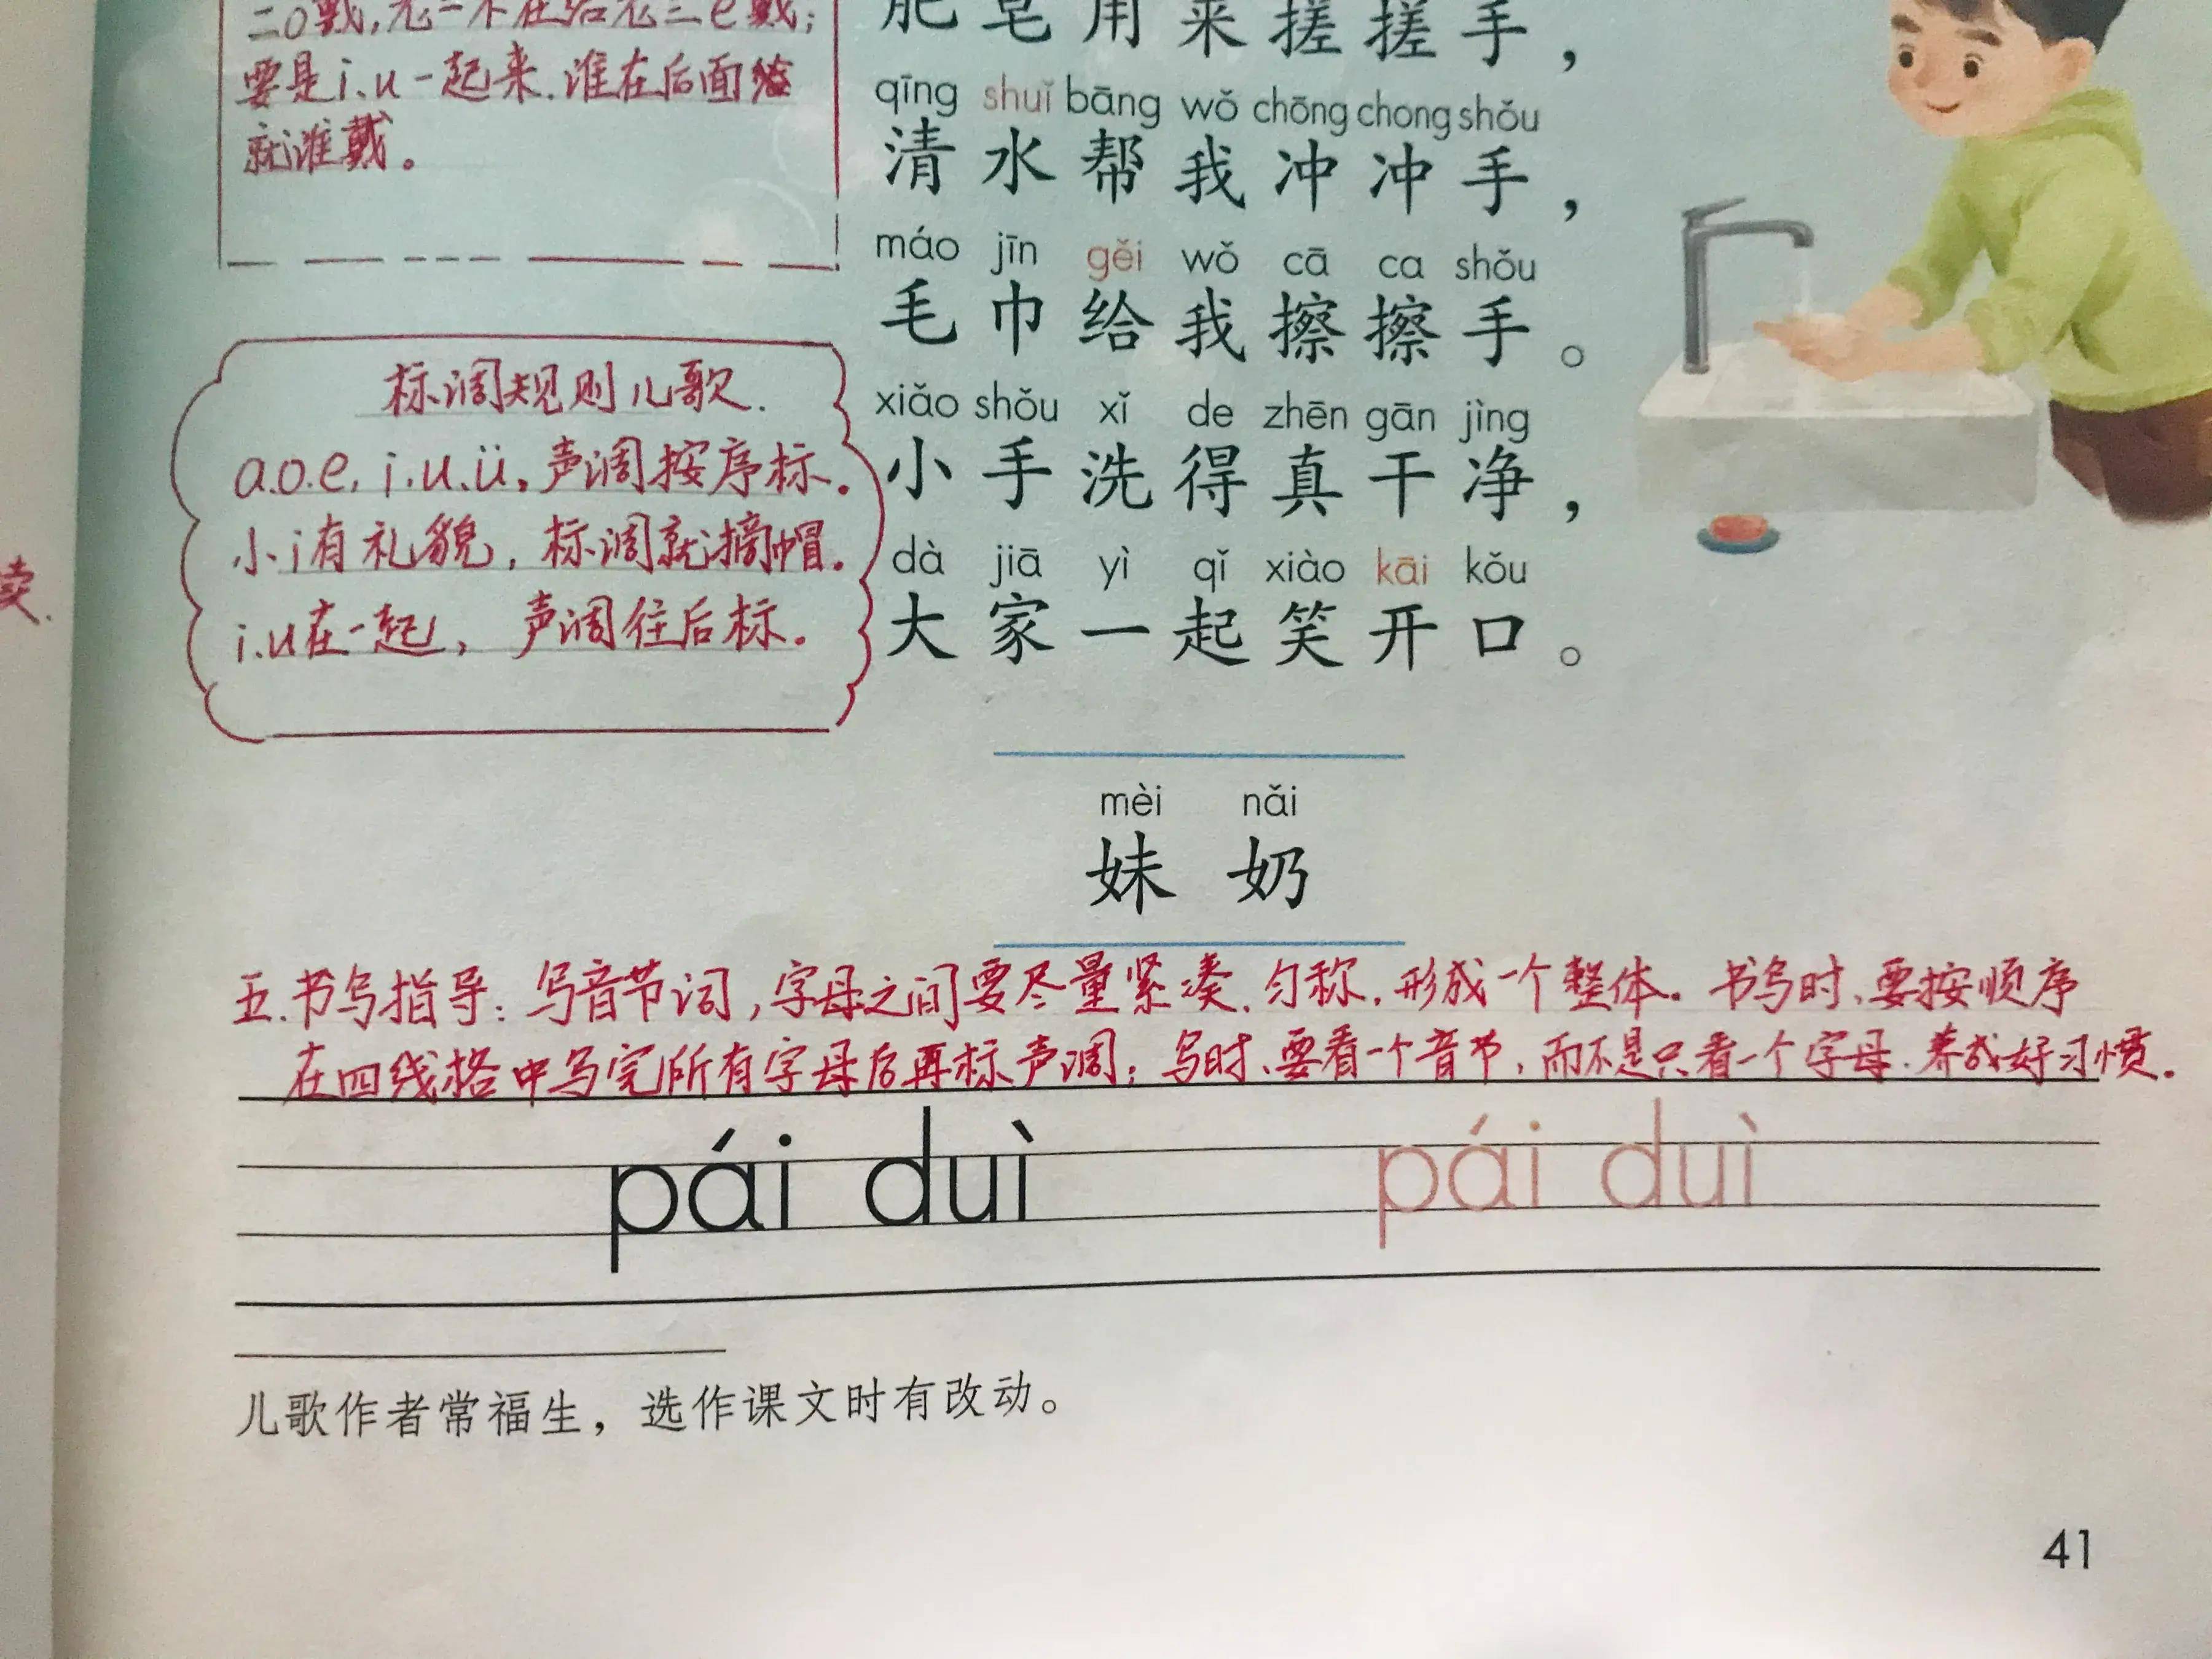 二o戴,老一不在给老三e戴;
要是i.u一起来.谁在后面给
就谁戴。
肥皂用来搓搓手，
qīng shuǐ bāng wǒ chōng chong shǒu
清水帮我冲冲手，
máo jīn gěi wǒ cā ca shǒu
毛巾给我擦擦手。
xiǎo shǒu xǐ de zhēn gān jìng
小手洗得真干净，
dà jiā yì qǐ xiào kāi kǒu
大家一起笑开口。
标调规则儿歌.
a.o.e,i.u.ü,声调按序标。
小i有礼貌,标调就摘帽。
i.u在一起,声调往后标。
卖.
mèi nǎi
妹 奶
五.书写指导:写音节词,字母之间要尽量紧凑.匀称,形成一个整体。书写时、要按顺序
在四线格中写完所有字母后再标声调;写时、要看一个音节,而不是只看一个字母.养成好习惯。
pái duì pái duì
儿歌作者常福生，选作课文时有改动。
41